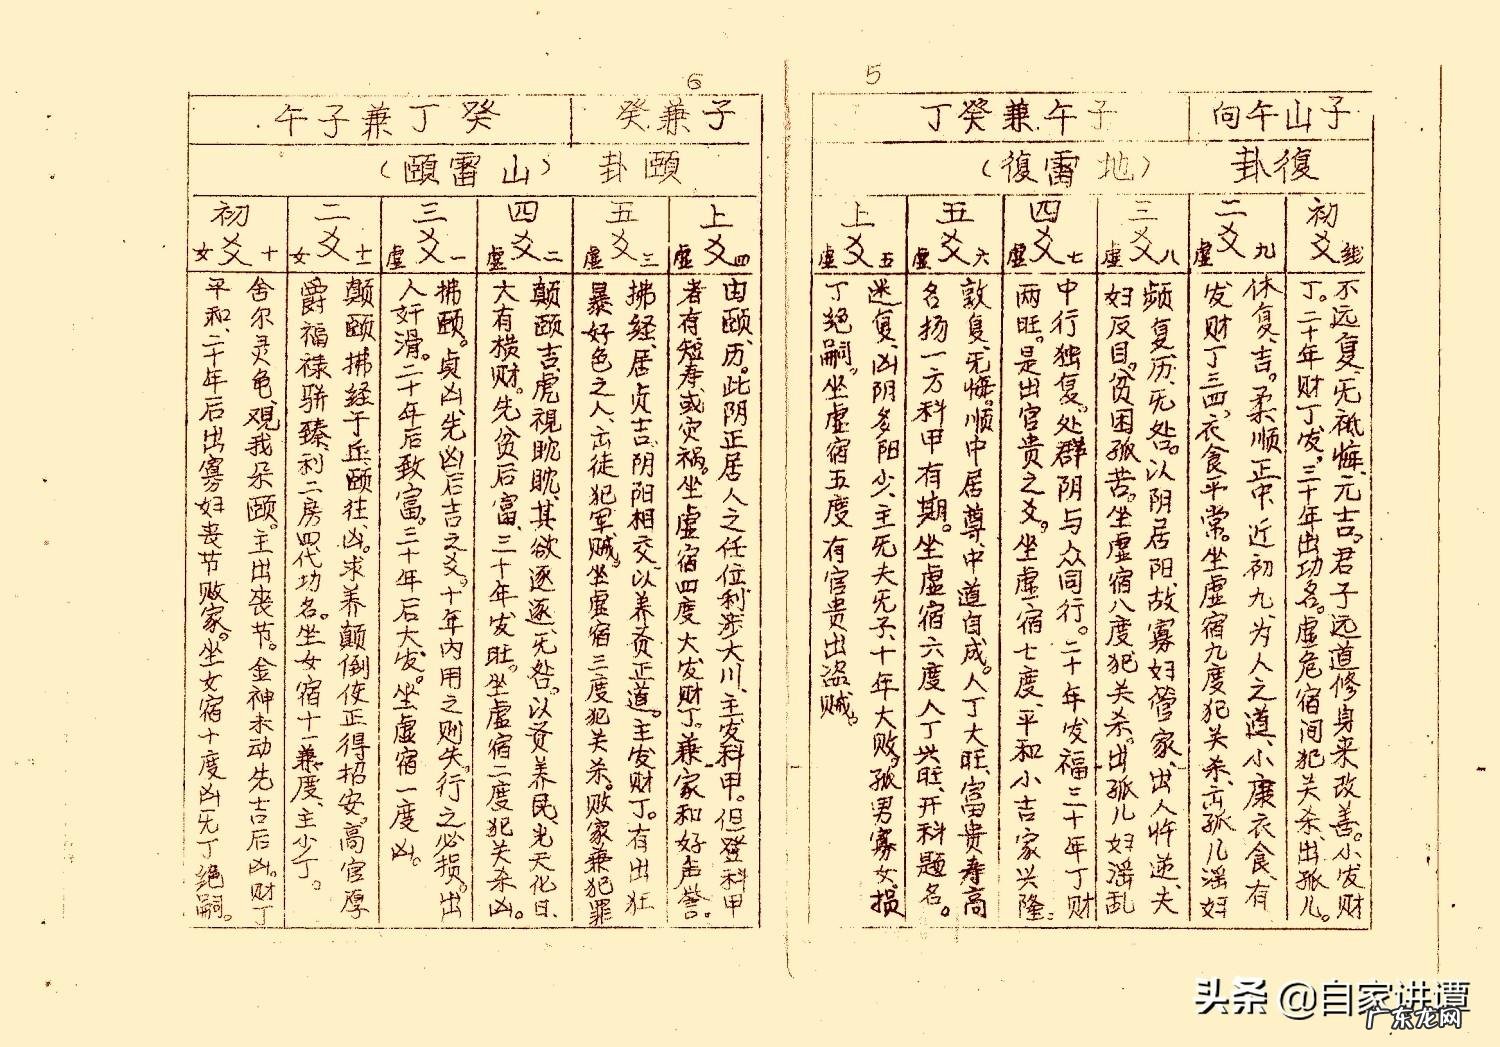 5
子山午向
子午兼癸丁
復卦
（地雷復）
初爻
线
不远复，无祗悔，元吉。君子远道修身来改善。小发财
丁。二十年财丁发，三十年出功名。虚危宿间犯关杀，出孤儿。
二爻
虚九
休复，吉。柔顺正中，近初九，为人之道，小康衣食，有
发财丁三四，衣食平常。坐虚宿九度犯关杀，出孤儿淫妇
三爻
虚八
频复，历，无咎。以阴居阳，故寡妇管家，出人忤逆，夫
妇反目。贫困孤苦。坐虚宿八度犯关杀。出孤儿妇淫乱
四爻
虚七
中行独复。处群阴与众同行。二十年发福三十年丁财
两旺。是出官贵之爻。坐虚宿七度，平和小吉家兴隆。
五爻
虚六
敦复，无悔。顺中居尊，中道自成。人丁大旺，富贵寿高
名扬一方科甲有期。坐虚宿六度人丁兴旺，开科题名。
上爻
虚五
迷复，凶阴多阳少，主无夫无子，十年大败。孤男寡女，损
丁绝嗣。坐虚宿五度有官贵出盗贼。
6
子兼癸
癸丁兼子午
頤卦
（山雷頤）
上爻
虚四
由颐，历。此阴正居人之任位利涉大川，主发科甲。但登科甲
者有短寿或灾祸。坐虚宿四度大发财丁。兼家和好声誉。
五爻
虚三
拂经，居贞吉，阴阳相交以养资正道。主发财丁。有出狂
暴好色之人，出徒犯军贼。坐虚宿三度犯关杀。败家兼犯罪
四爻
虚二
颠颐吉，虎視眈眈，其欲逐逐，无咎。以资养民，光天化日、
大有横财。先贫后富，三十年发旺。坐虚宿二度犯关杀凶。
三爻
虚一
拂颐。贞凶，先凶后吉之爻。十年内用之则失，行之必损。出
人奸滑。二十年后致富。三十年后大发。坐虚宿一度凶。
二爻
女十一
颠颐拂经于丘，颐往凶。求养颠倒使正得招安。高官厚
爵福禄骈臻，利二房四代功名。坐女宿十一兼度，主少丁。
初爻
女十
舍尔灵龟，观我朵颐。主出丧节。金神未动先吉后凶。财丁
平和，二十年后出寡妇丧节败家。坐女宿十度凶无丁绝嗣。
头条 @自家讲谭
广东龙网